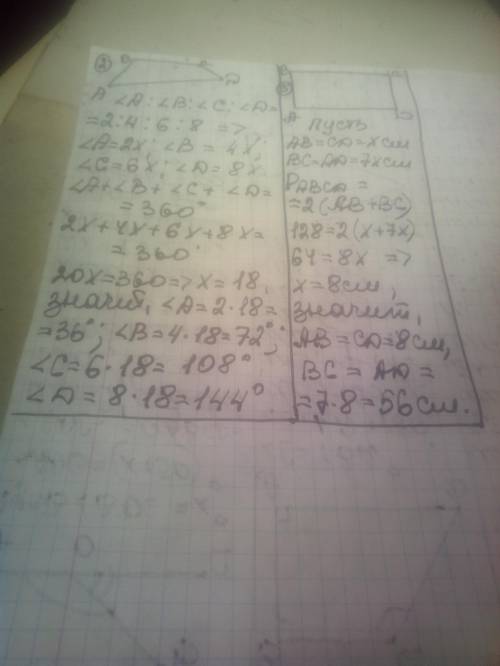 ②
B C
A D
∠A : ∠B : ∠C : ∠D =
= 2 : 4 : 6 : 8 =>
∠A = 2x; ∠B = 4x;
∠C = 6x; ∠D = 8x
∠A + ∠B + ∠C + ∠D =
= 360°
2x + 4x + 6x + 8x =
= 360°
20x = 360 => x = 18,
значит, ∠A = 2·18 =
= 36°; ∠B = 4·18 = 72°;
∠C = 6·18 = 108°
∠D = 8·18 = 144°
B C
A D
Пусть
AB = CD = x см
BC = AD = 7x см
PABCD =
= 2(AB + BC)
128 = 2(x + 7x)
64 = 8x =>
x = 8 см,
значит,
AB = CD = 8 см,
BC = AD =
= 7·8 = 56 см.